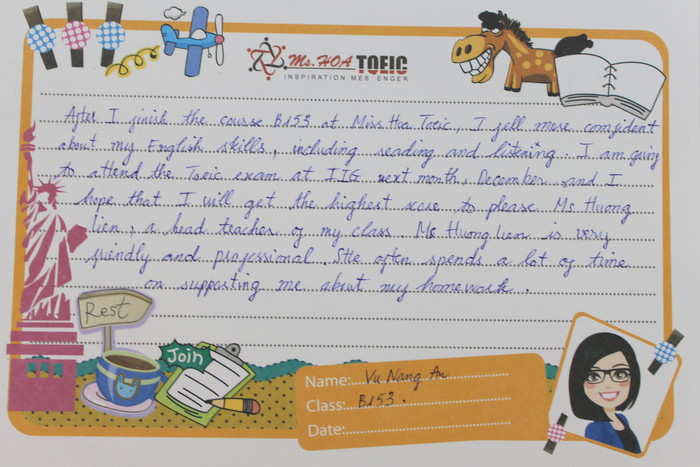 Ms.HOA TOEIC
INSPIRATION MESSENGER
After I finish the course B153 at Miss Hoa Toeic, I fell more comfident
about my English skills, including reading and listening. I am going
to attend the Toeic exam at IIG next month, December and I
hope that I will get the highest score to please Ms Huong
lien, a head teacher of my class. Ms Huong lien is very
friendly and professional. She often spends a lot of time
on supporting me about my homework.
Rest
Join
Name: Vu Nang An
Class: B153.
Date: